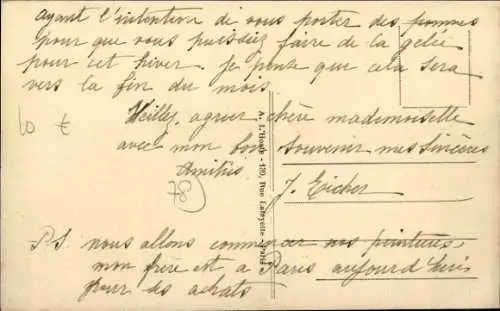 ayant l'intention di vous porter des pommes
pour que vous puissiez faire de la gelée
pour cet hiver. je pense que cela sera
vers la fin du mois
Veillez, agreer chère mademoiselle
avec mon bon souvenir mes sincères
Amitiés
J. Eicher
10 €
78
A. L'Hoste - 120, Rue Lafayette - Paris
P.S. nous allons commencer nos peintures,
mon frère est, a Paris aujourd'huis
pour les achats